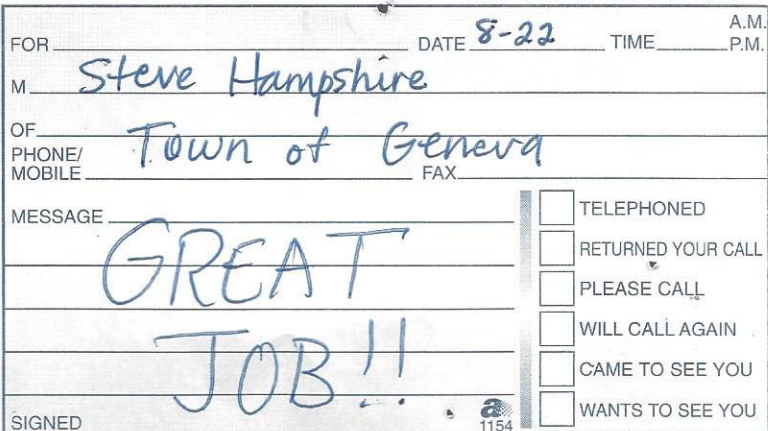 FOR DATE 8-22 TIME A.M. P.M.
M Steve Hampshire
OF Town of Geneva
PHONE/ MOBILE FAX
MESSAGE GREAT
JOB!!
SIGNED
a 1154
TELEPHONED
RETURNED YOUR CALL
PLEASE CALL
WILL CALL AGAIN
CAME TO SEE YOU
WANTS TO SEE YOU